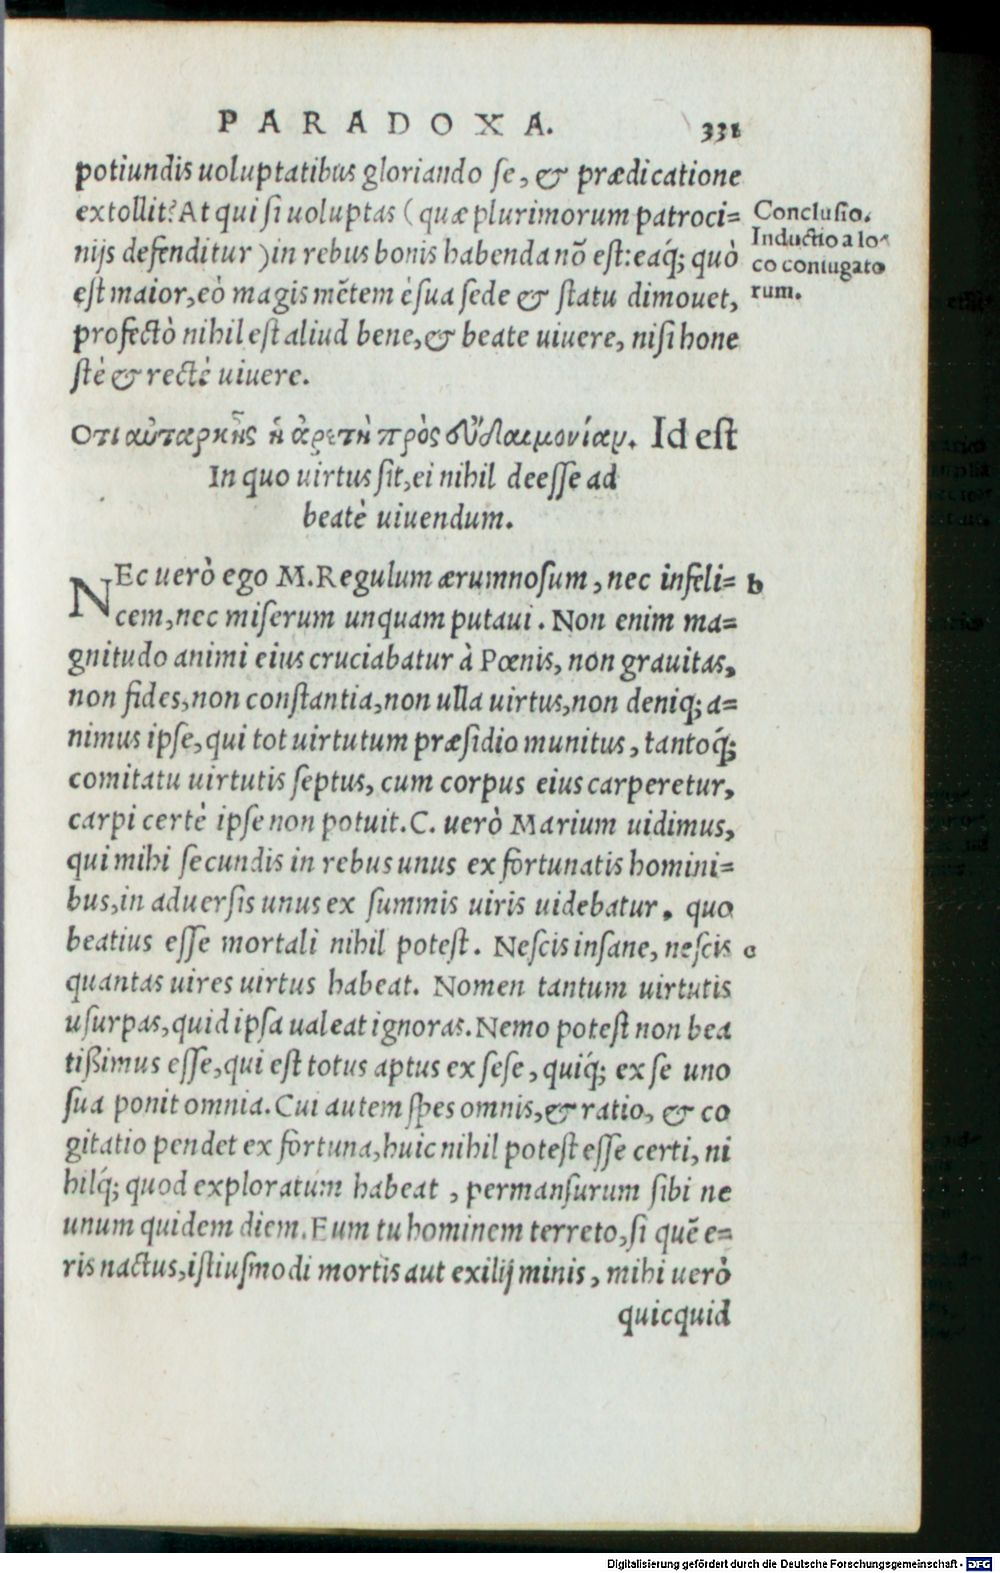 PARADOXA. 331
potiundis uoluptatibus gloriando se, & prædicatione
extollit? Atqui si uoluptas (quæ plurimorum patroci=
nijs defenditur) in rebus bonis habenda nō est: eaq́; quò
est maior, eò magis mētem è sua sede & statu dimouet,
profectò nihil est aliud bene, & beate uiuere, nisi hone
stè & rectè uiuere.
Conclusio.
Inductio a lo-
co coniugato
rum.
Οτι αὐτάρκης ἡ ἀρετὴ πρὸς εὐδαιμονίαν. Id est
In quo uirtus sit, ei nihil deesse ad
beatè uiuendum.
NEc uerò ego M. Regulum ærumnosum, nec infeli= b
cem, nec miserum unquam putaui. Non enim ma=
gnitudo animi eius cruciabatur à Pœnis, non grauitas,
non fides, non constantia, non ulla uirtus, non deniq; a=
nimus ipse, qui tot uirtutum præsidio munitus, tantoq́;
comitatu uirtutis septus, cum corpus eius carperetur,
carpi certè ipse non potuit. C. uerò Marium uidimus,
qui mihi secundis in rebus unus ex fortunatis homini=
bus, in aduersis unus ex summis uiris uidebatur, quo
beatius esse mortali nihil potest. Nescis insane, nescis c
quantas uires uirtus habeat. Nomen tantum uirtutis
usurpas, quid ipsa ualeat ignoras. Nemo potest non bea
tißimus esse, qui est totus aptus ex sese, quiq́; ex se uno
sua ponit omnia. Cui autem spes omnis, & ratio, & co
gitatio pendet ex fortuna, huic nihil potest esse certi, ni
hilq́; quod exploratum habeat, permansurum sibi ne
unum quidem diem. Eum tu hominem terreto, si quē e=
ris nactus, istiusmodi mortis aut exilij minis, mihi uerò
quicquid
Digitalisierung gefördert durch die Deutsche Forschungsgemeinschaft - DFG